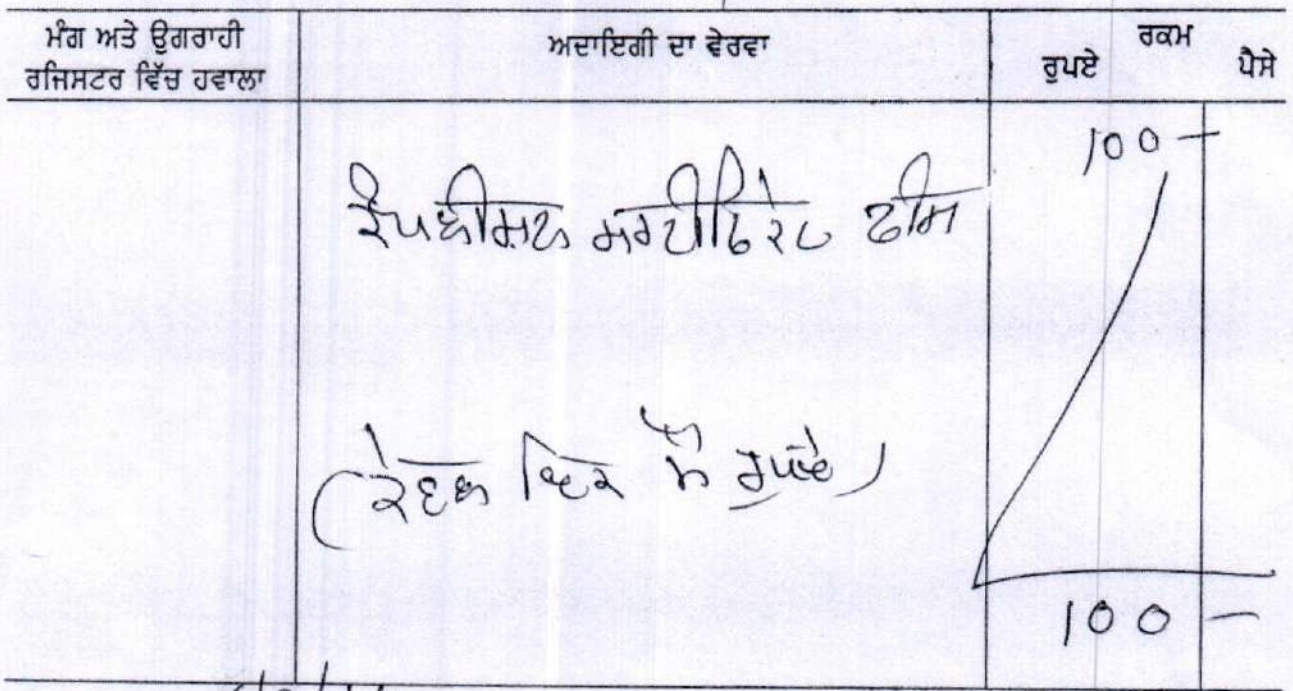 ਮੰਗ ਅਤੇ ਉਗਰਾਹੀ
ਰਜਿਸਟਰ ਵਿੱਚ ਹਵਾਲਾ
ਅਦਾਇਗੀ ਦਾ ਵੇਰਵਾ
ਰਕਮ
ਰੁਪਏ ਪੈਸੇ
100 —
ਕੰਪਲੀਸ਼ਨ ਸਰਟੀਫਿਕੇਟ ਫੀਸ
(ਕੇਵਲ ਇਕ ਸੌ ਰੁਪਏ)
100 —